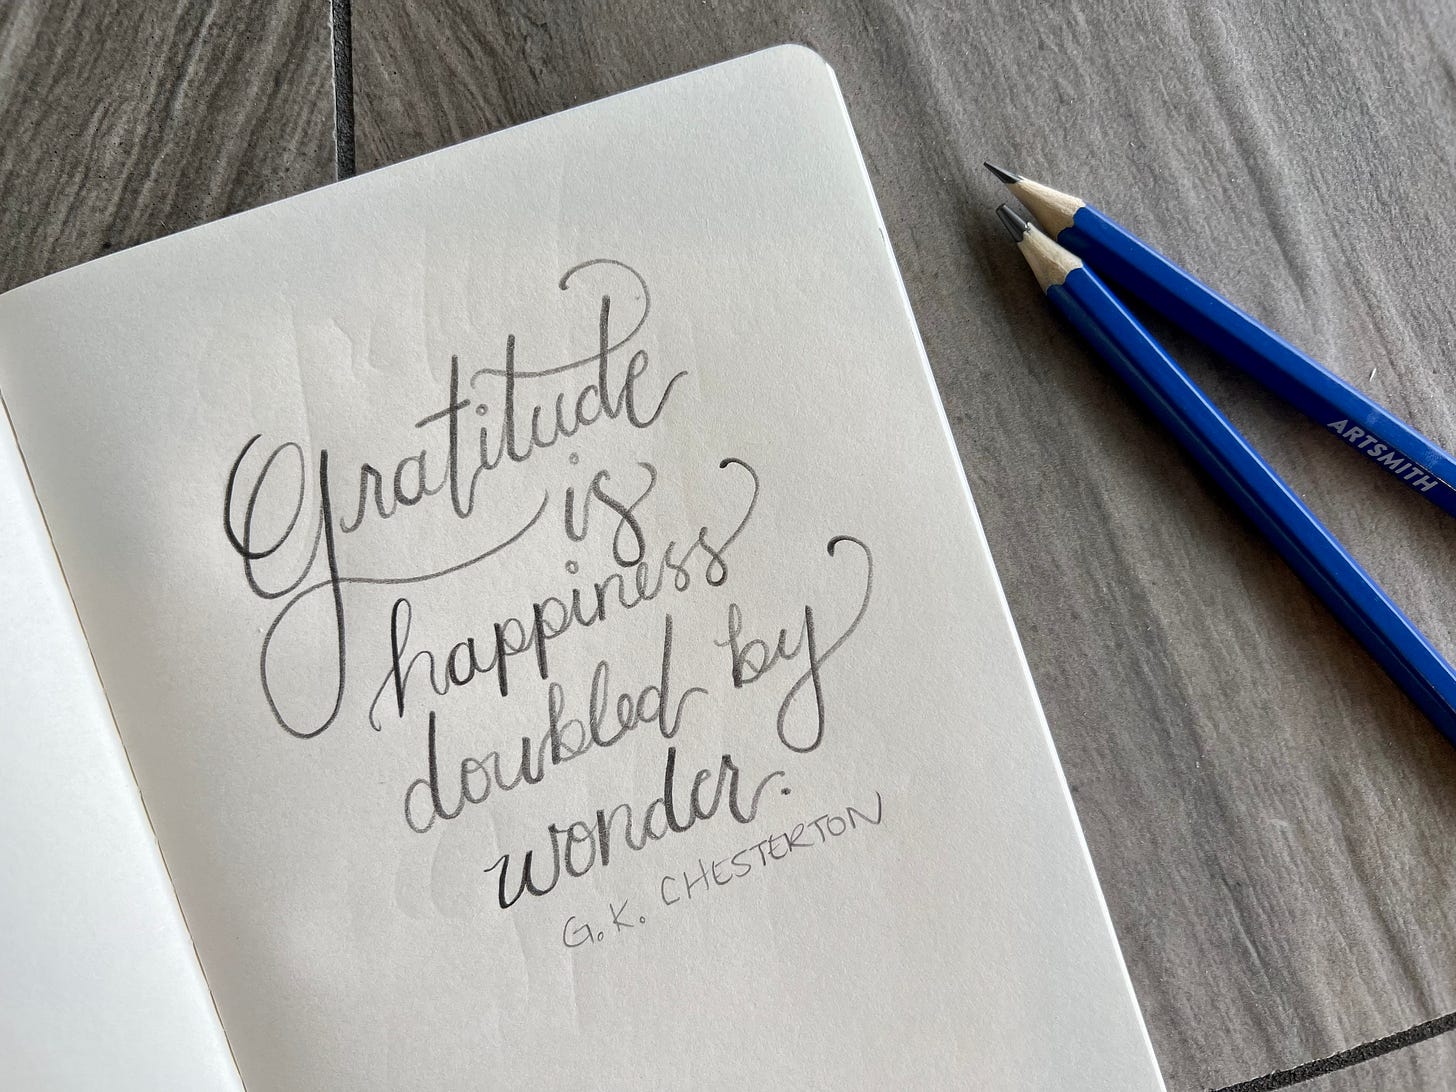 Gratitude
is
happiness
doubled by
wonder.
G.K. CHESTERTON
ARTSMITH